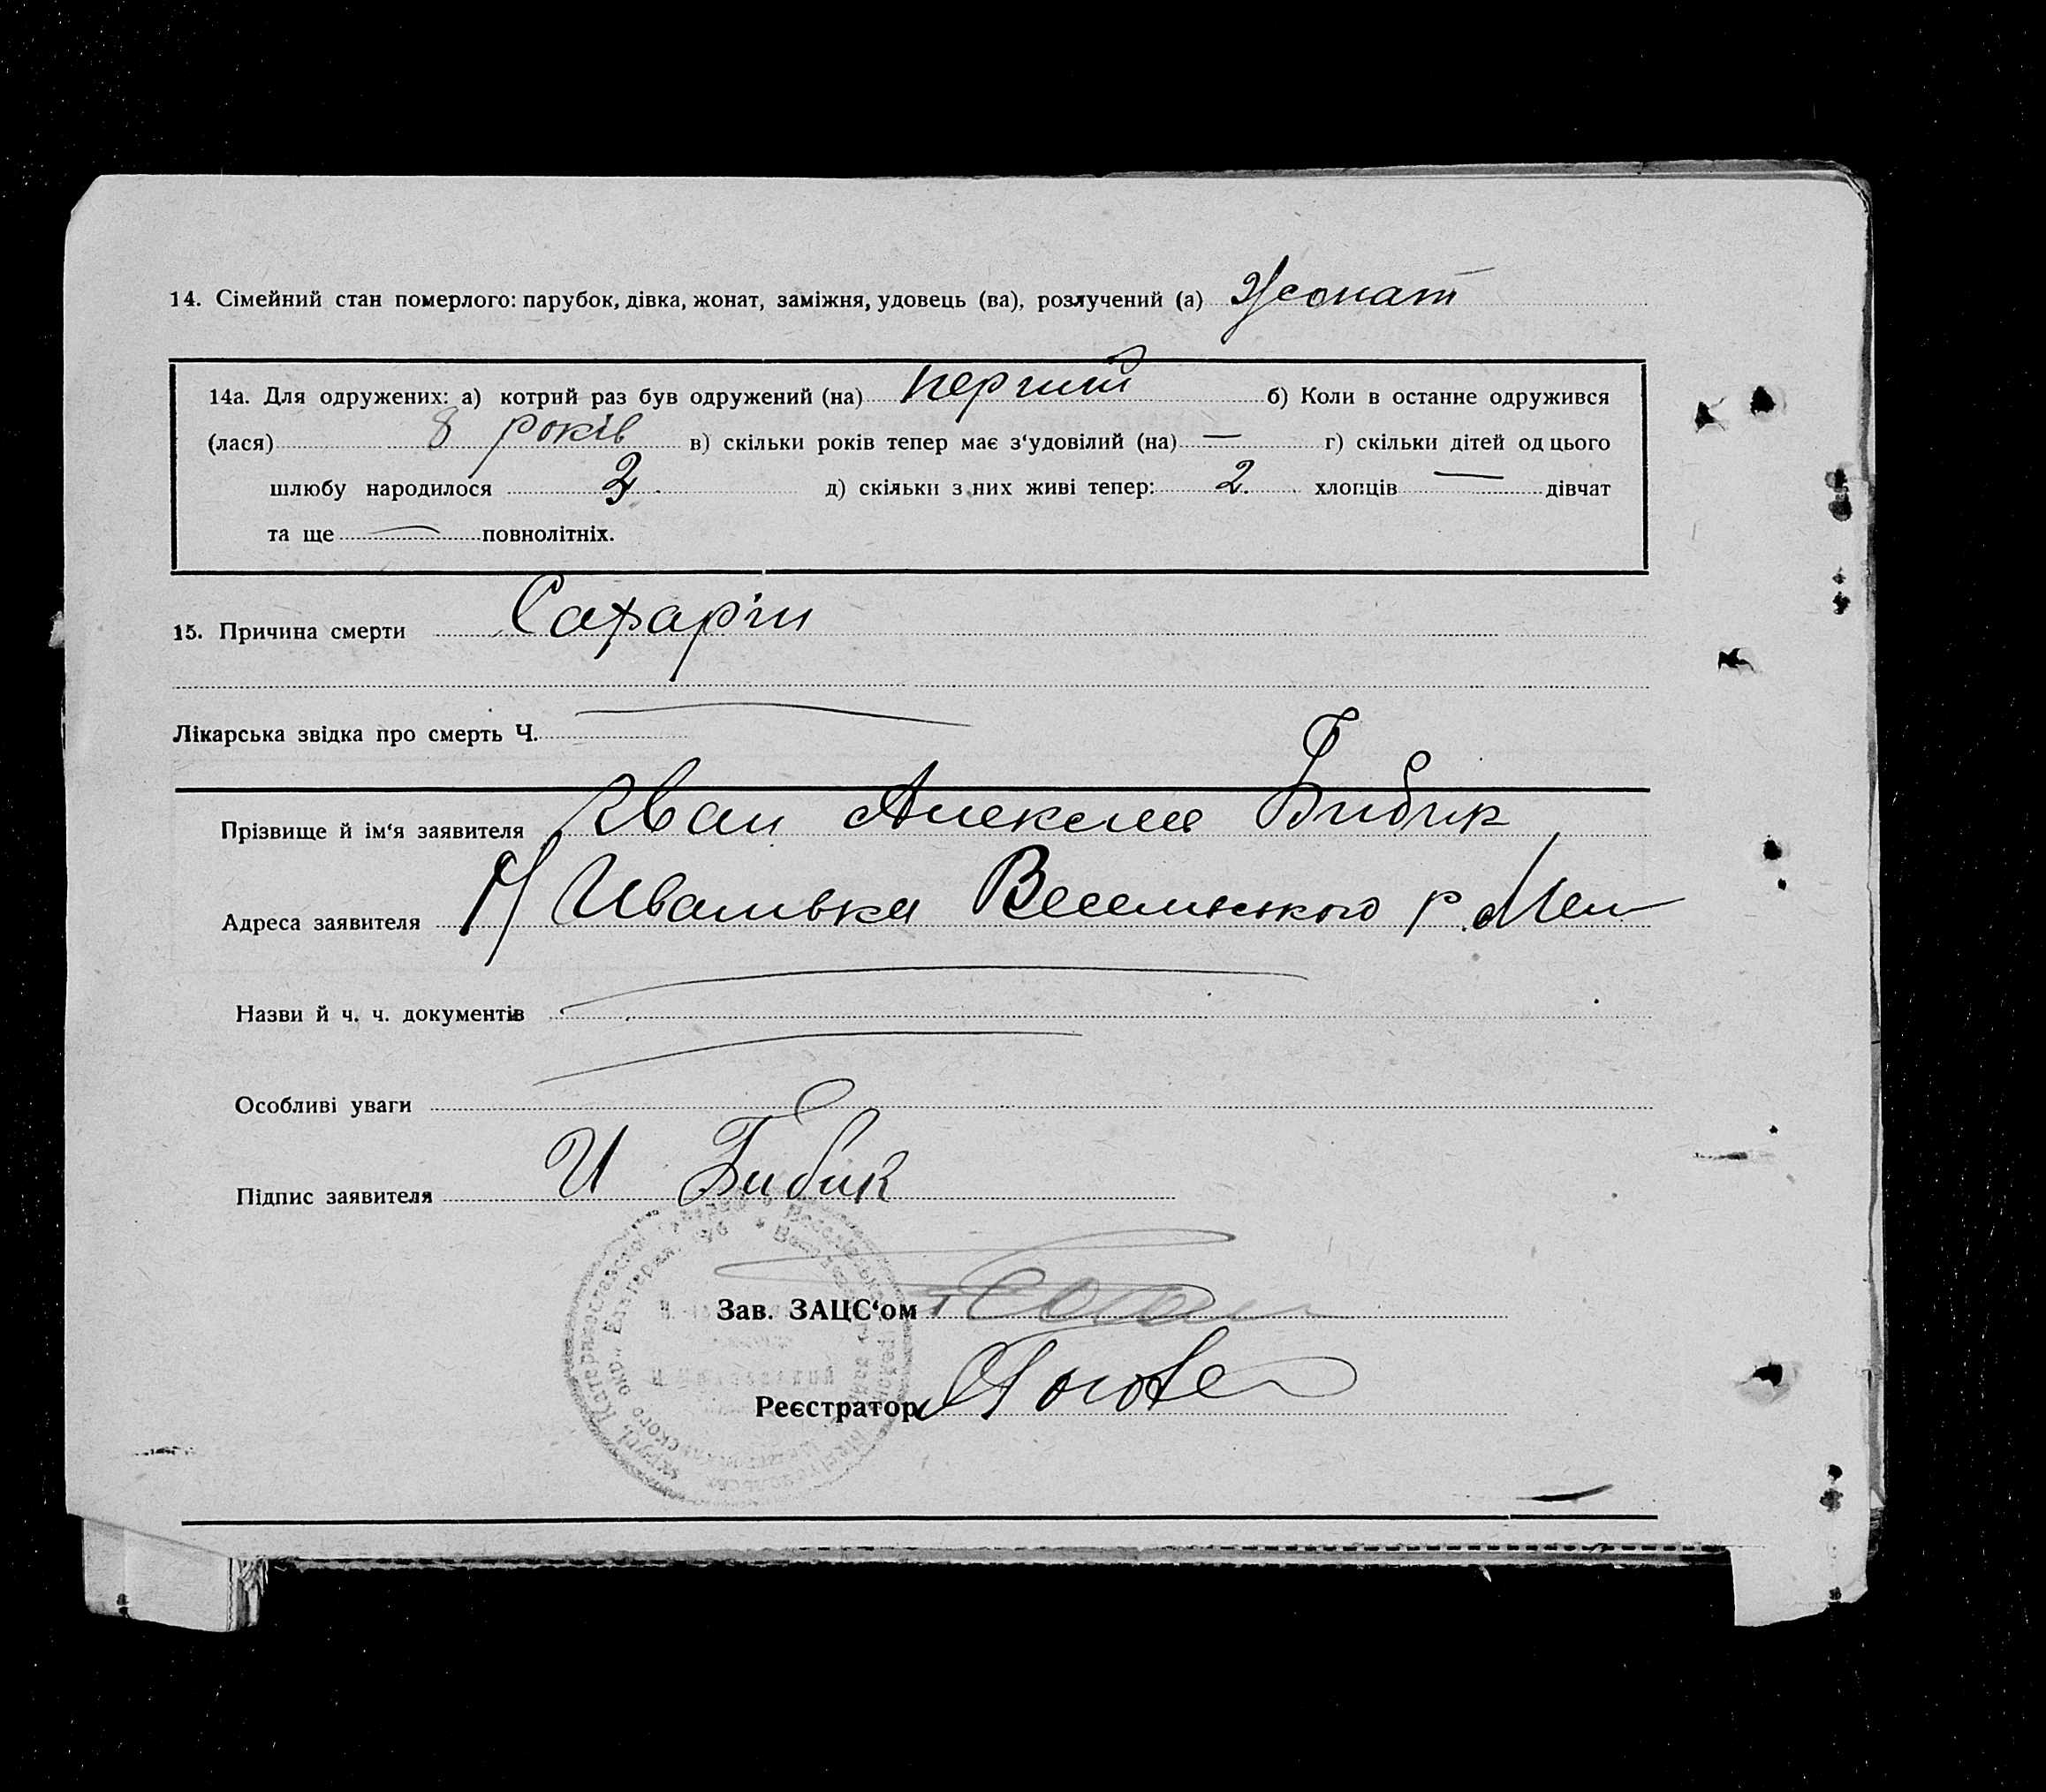 14. Сімейний стан померлого: парубок, дівка, жонат, заміжня, удовець (ва), розлучений (а) Жонат
14а. Для одружених: а) котрий раз був одружений (на) перший б) Коли в останне одружився
(лася) 8 років в) скільки років тепер має з‘удовілий (на) — г) скільки дітей од цього
шлюбу народилося д) скільки з них живі тепер: 2 хлопців — дівчат
та ще — повнолітніх.
15. Причина смерти
Лікарська звідка про смерть Ч.
Прізвище й ім‘я заявителя Иван Алексеев Бибик
Адреса заявителя Ивановка р. Мел
Назви й ч. ч. документів
Особливі уваги
Підпис заявителя И Бибик
Зав. ЗАЦС‘ом
Реєстратор